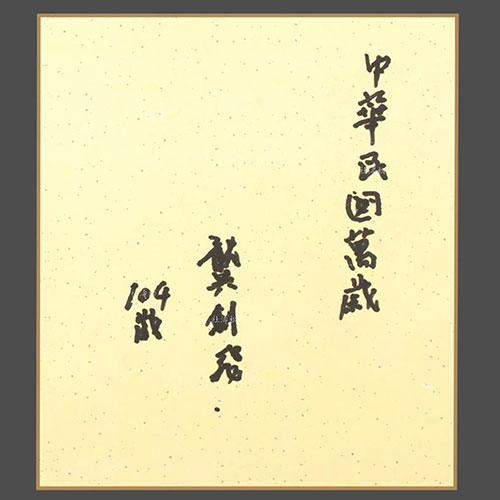 中華民國萬歲
龔
104歲